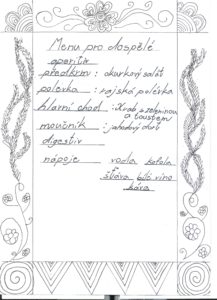 Menu pro dospělé
aperitiv
předkrm : okurkový salát
polévka : rajská polévka
hlavní chod : Krab s zeleninou
a toustem
moučník : jahodový dort
digestiv
nápoje vodka kofola
šťáva bílé víno
káva